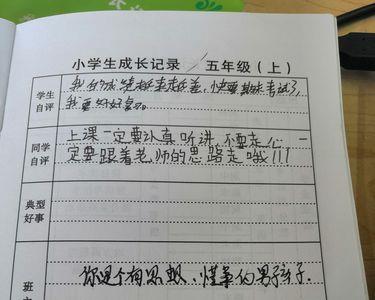 小学生成长记录 五年级（上）
学生
自评
我的成绩越来越差，快要期末考试了，
我要好好复习。
同学
自评
上课一定要认真听讲 不要走心 一
定要跟着老师的思路走哦!!!
典型
好事
班
你是个有思想、懂事的男孩子.